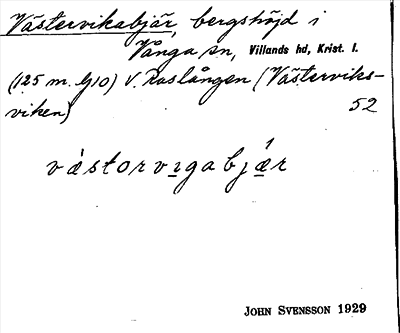 Västervikabjär, bergshöjd i
Vånga sn, Villands hd, Krist. l.
(125 m. G10) V. Raslången (Västerviks-
viken) 52
västorvıgabjær
JOHN SVENSSON 1929